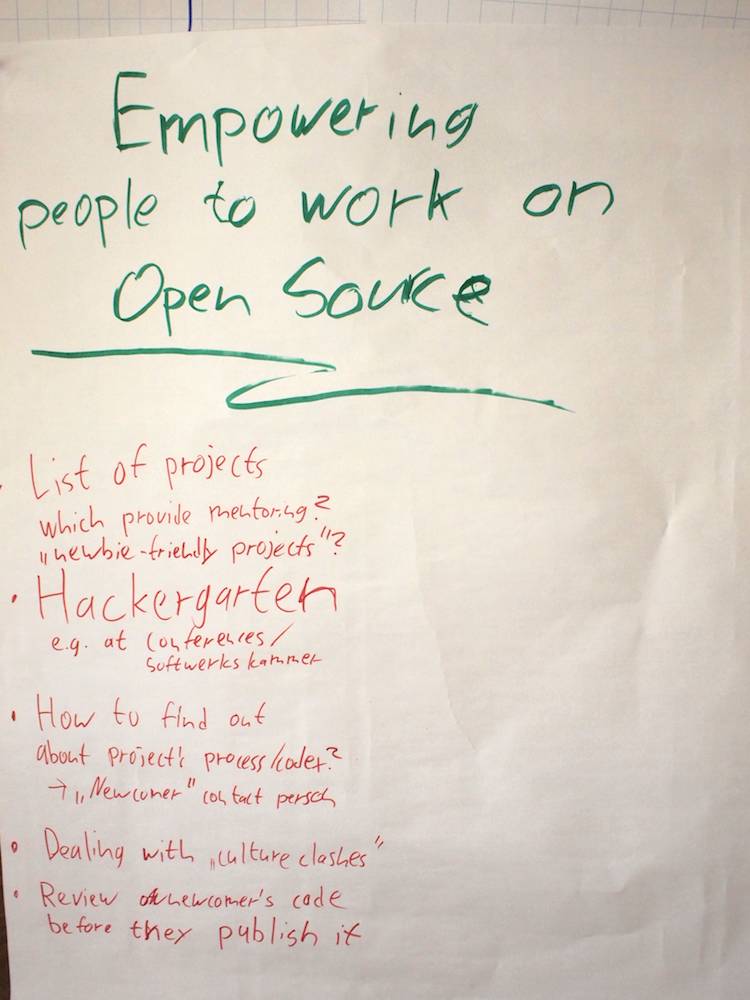 Empowering
people to work on
Open Source
· List of projects
which provide mentoring?
„newbie-friendly projects"?
· Hackergarten
e.g. at conferences/
Softwerkskammer
· How to find out
about project's process/codex?
→ „Newcomer" contact person
· Dealing with „culture clashes"
· Review newcomer's code
before they publish it